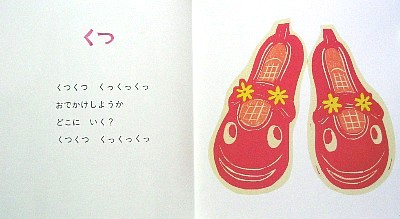 くつ
くつくつ　くっくっくっ
おでかけしようか
どこに　いく？
くつくつ　くっくっくっ